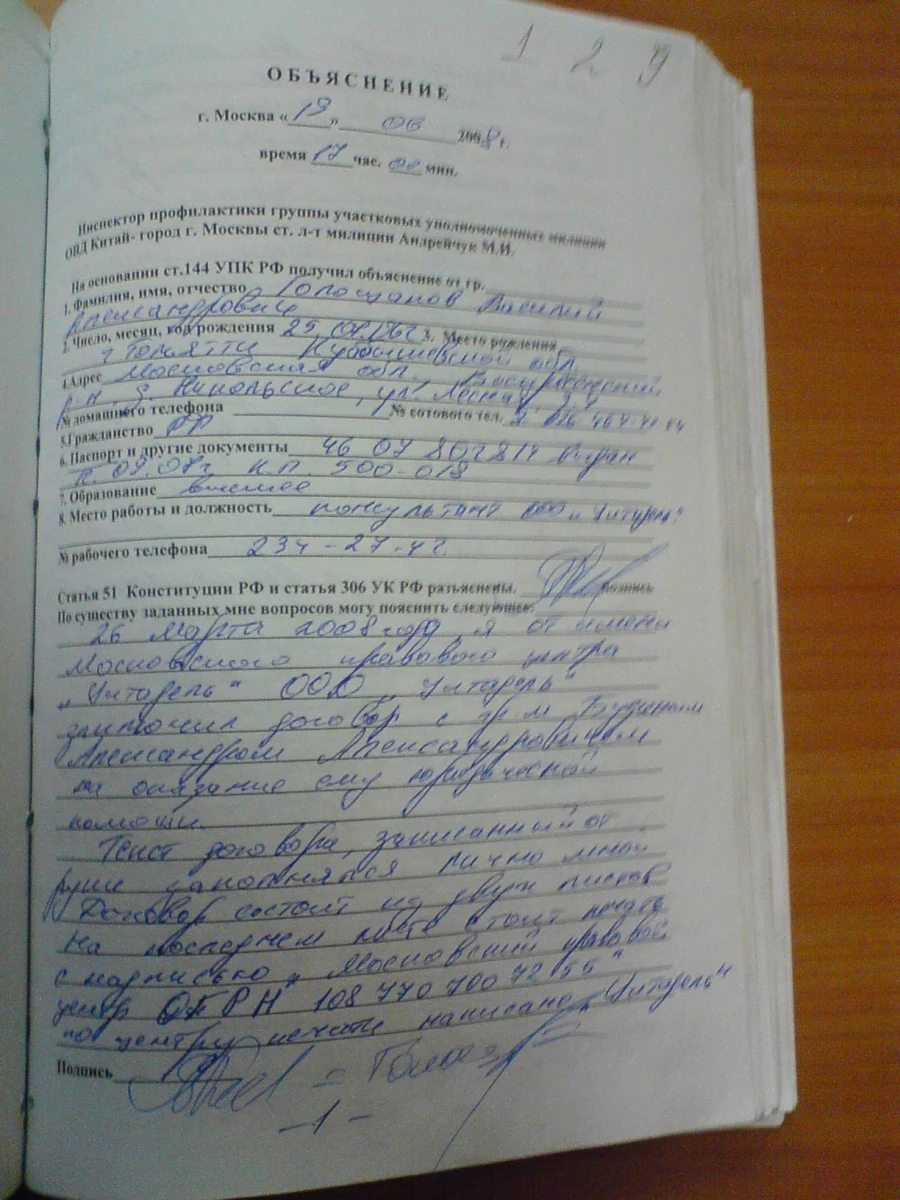 129
ОБЪЯСНЕНИЕ
г. Москва «19» 06 2008 г.
время 17 час. 00 мин.
Инспектор профилактики группы участковых уполномоченных милиции
ОВД Китай- город г. Москвы ст. л-т милиции Андрейчук М.И.
На основании ст.144 УПК РФ получил объяснение от гр.
1. Фамилия, имя, отчество Голощапов Василий
Александрович
2. Число, месяц, год рождения 3. Место рождения
г Тольятти Куйбышевской обл.
4.Адрес Московская обл.
Никольское, ул. Лесная
№ домашнего телефона № сотового тел.
5.Гражданство РФ
6. Паспорт и другие документы 46 07 802814 выдан
к.п. 500-018
7. Образование высшее
8. Место работы и должность консультант ООО „Цитадель"
№ рабочего телефона 234-27-
Статья 51 Конституции РФ и статья 306 УК РФ разъяснены. подпись
По существу заданных мне вопросов могу пояснить следующее:
26 марта 2008 года, я от имени
Московского правового центра
„Цитадель" ООО „Цитадель"
заключил договор с гр-м
Александром Александровичем
на оказание ему юридической
помощи.
Текст договора, записанный от
руки заполнялся лично мной
Договор состоит из двух листов
На последнем листе стоит печать
с надписью „Московский правовой
центр ОГРН 108 770 700 72 55"
по центру печати написано „Цитадель"
Подпись
-1-